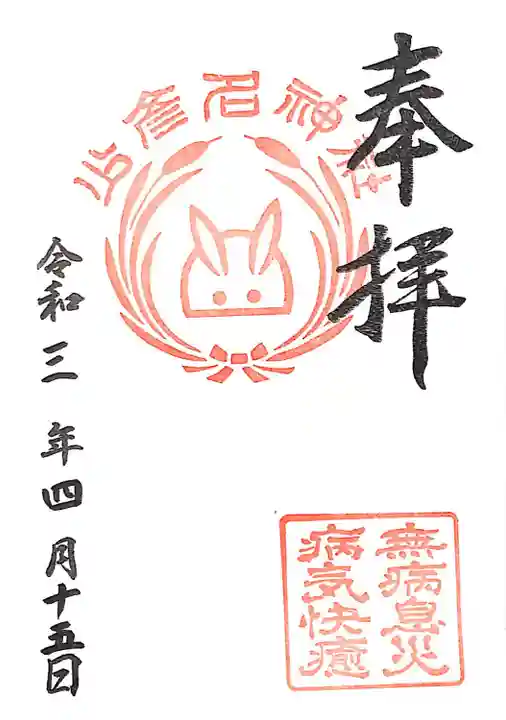 奉拝
少彦名神社
無病息災
病気快癒
令和三年四月十五日